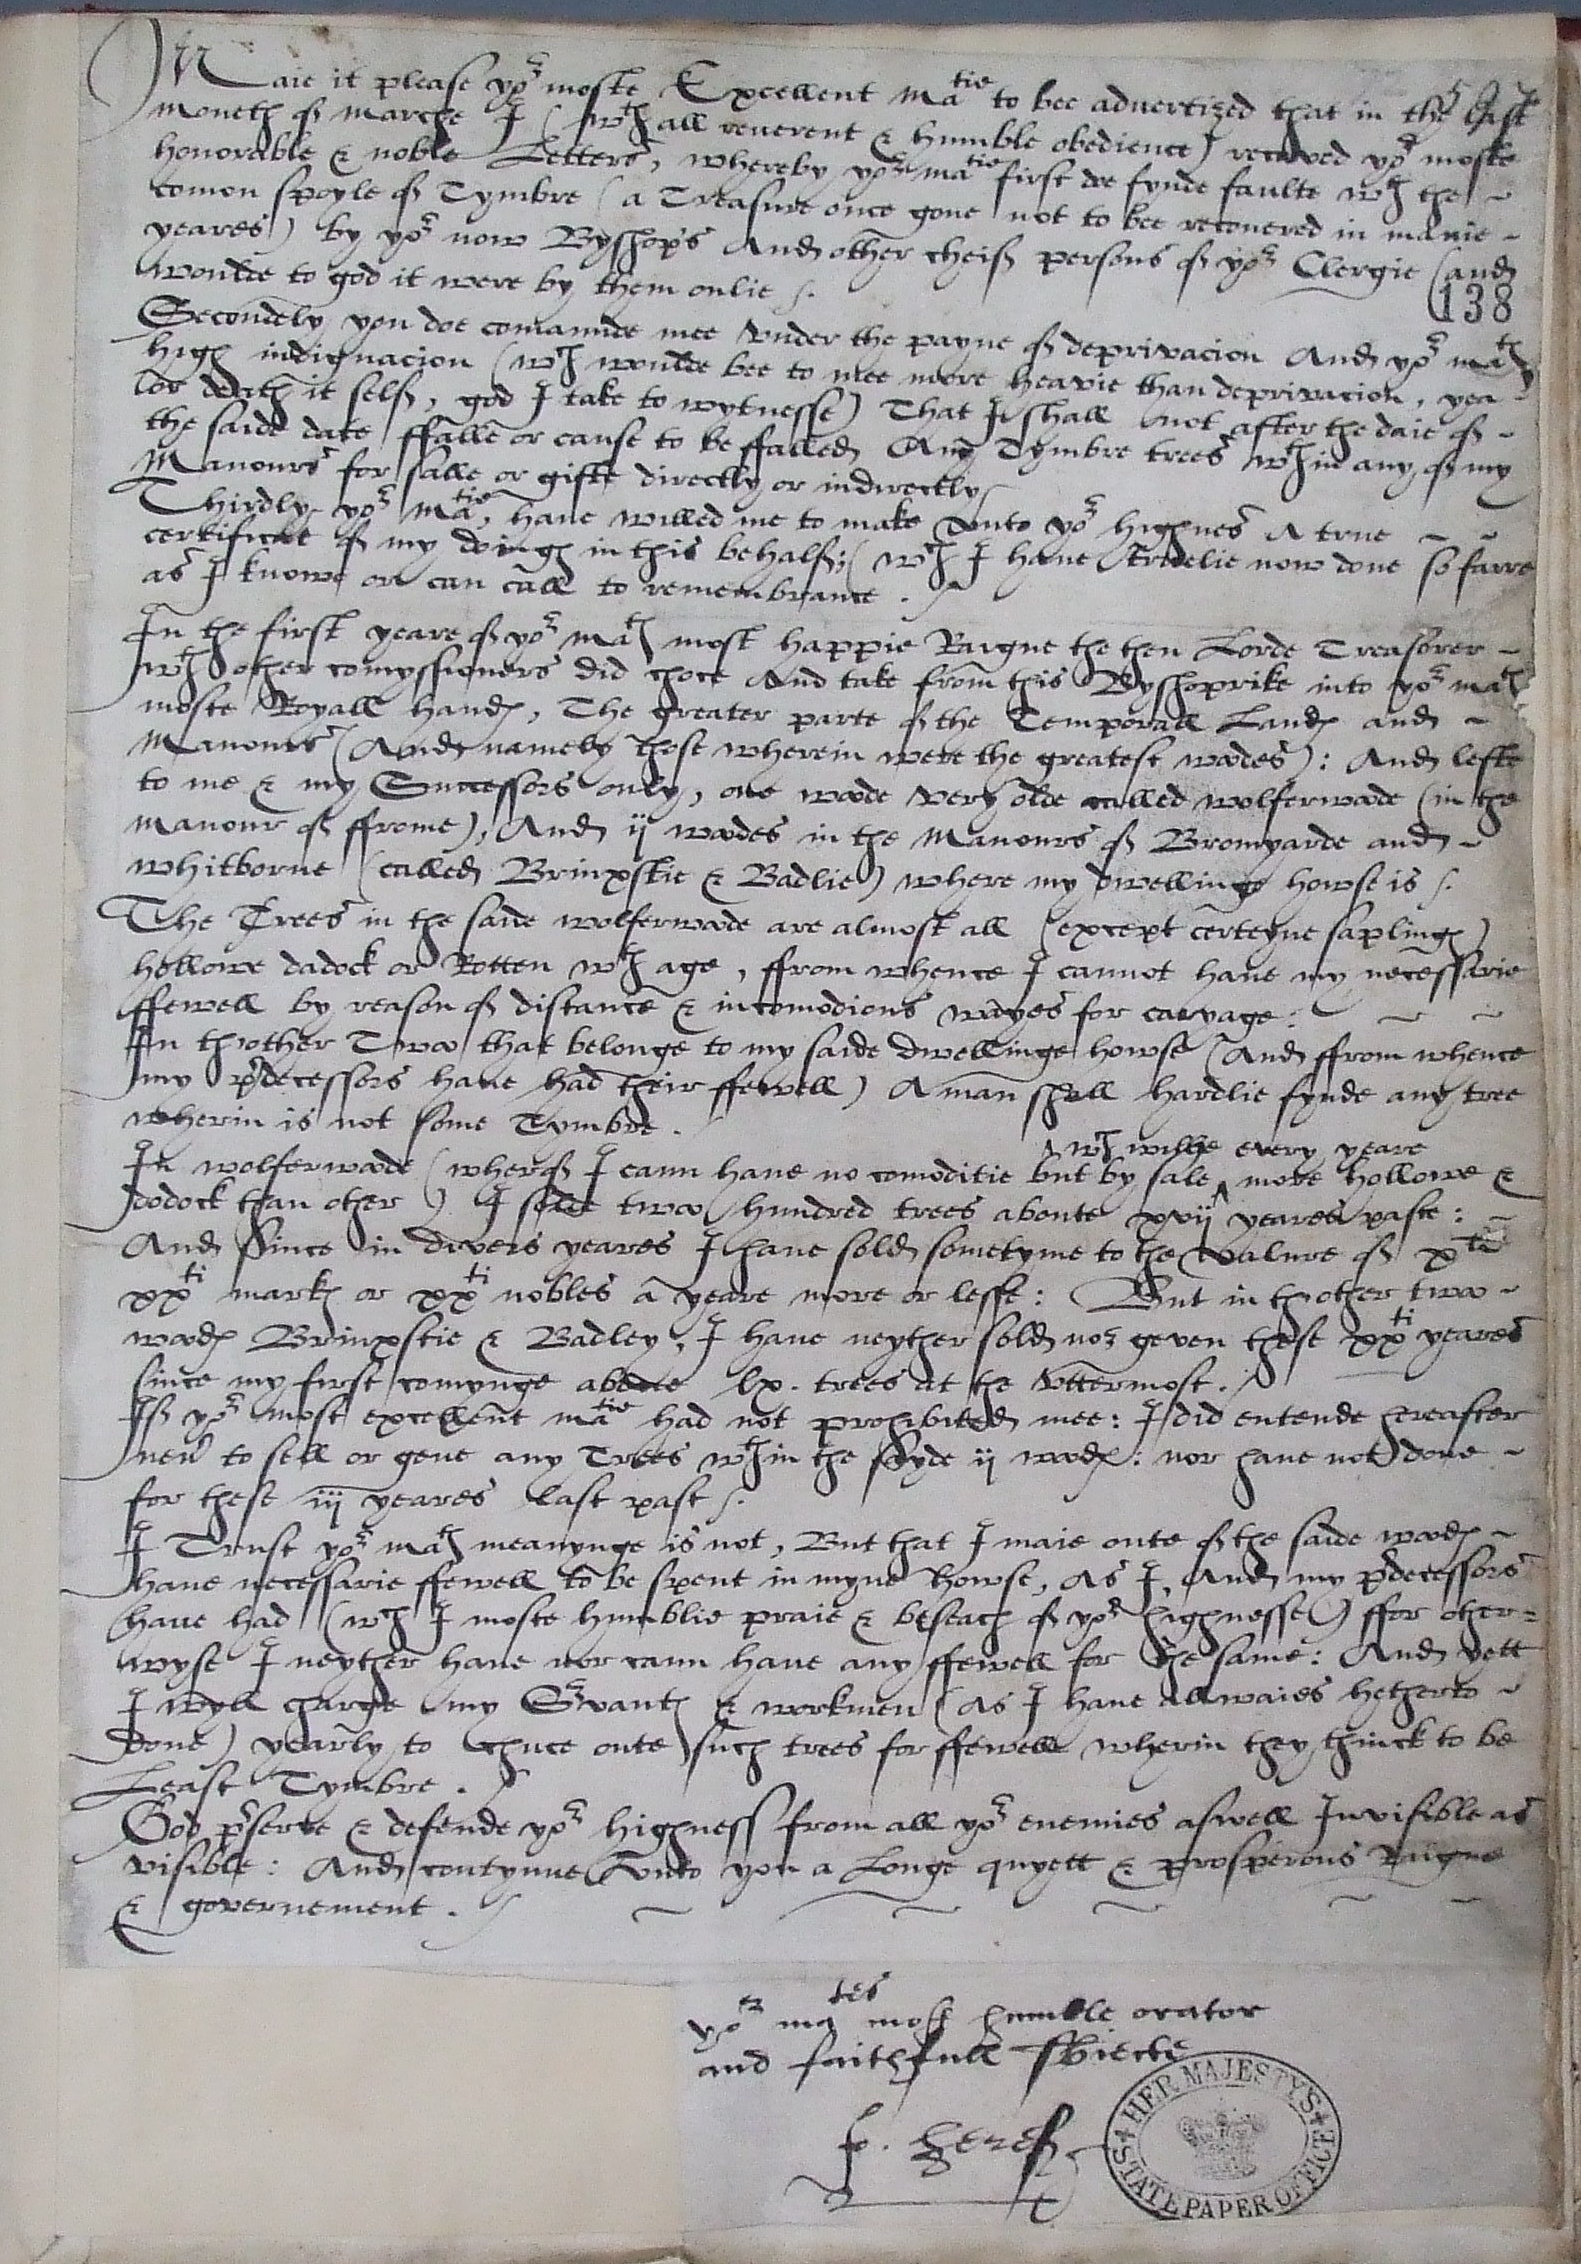 Maie it please yor moste Excellent Matie to bee advertized that in the last
moneth of Marche I (wth all reverent & humble obedience) receved yor moste
honorable & noble Letters, whereby yor Matie first doe fynde faulte wth the
comon spoyle of Tymbre (a Treasure once gone not to bee recouered in manie
yeares) by yor now Byshops And other cheif persons of yor Clergie (and
woulde to god it were by them onlie /.
138
Secondely you doe comaunde mee vnder the payne of deprivacion And yor mats
high indignacion (wch woulde bee to mee more heavie than deprivacion, yea
or death it self, god I take to wytnesse) That I shall not after the daie of
the saide date ffalle or cause to be ffalled Any Tymbre trees wthin any of my
Manours for salle or gifte directly or indirectly /
Thirdly yor Matie, haue willed me to make vnto yor highnes A true
certificat of my doings in this behalf: (wch I haue truelie now done so farre
as I knowe or can call to remembrance . /
In the first yeare of yor mats most happie Raigne the then Lorde Treasorer
wth other comyssioners did choce And take from this Byshoprike into yor mats
moste Royall hands, The greater parte of the Temporall Lands and
Manours (And namely those wherein were the greatest woodes): And lefte
to me & my Successors only, one woode very olde called wolferwoode (in the
Manour of ffrome), And ij woodes in the Manours of Bromyarde and
whitborne (called Brinxstie & Badlie) where my dwellinge howse is /.
The Trees in the saide wolferwoode are almost all (except certeyne saplings)
hollowe dadock or Rotten wth age, ffrom whence I cannot haue my necessarie
ffewell by reason of distance & incomodious wayes for caryage:
In thother Twoo that belonge to my saide dwellinge howse (And ffrom whence
my predecessors haue had their ffewell) A man shall hardlie fynde any tree
wherin is not some Tymbre . /
^ wch wilbe every yeare
In wolferwoode (wherof I cann haue no comoditie but by sale ^ more hollowe &
dodock than other) I solde twoo hundred trees aboute xvij yeares paste:
And Since in divers yeares I haue sold sometyme to the valure of xti
xxti marks or xxti nobles a yeare more or lesse: But in thother twoo
woods Brinxstie & Badley, I haue neyther sold nor geven these xxti yeares
since my first comynge aboue lx. trees at the vttermost. /
If yor most excellent matie had not prohibited mee: I did entende hereafter
never to sell or geve any Trees wthin the sayde ij woods: nor haue not done
for these iij yeares last past /.
I Trust yor mats meanynge is not, But that I maie oute of the saide woods
haue necessarie ffewell to be spent in myne howse, As I, And my predecessors
haue had (wch I moste humblie praie & beseach of yor highnesse) ffor other=
wyse I neyther haue nor cann haue any ffewell for the same: And yett
I wyll charge my Servants & workmen (As I haue allwaies hetherto
done) yearly to chuce oute such trees for ffewell wherin they thinck to be
Least Tymbre . /
God preserve & defende yor highness from all yor enemies aswell Invisible as
visible: And contynue vnto you a Longe quyett & prosperous Raigne
& governement . /
yor mates most humble orator
and faithfull subiecte
Jo. Heref
HER MAJESTY'S
STATE PAPER OFFICE